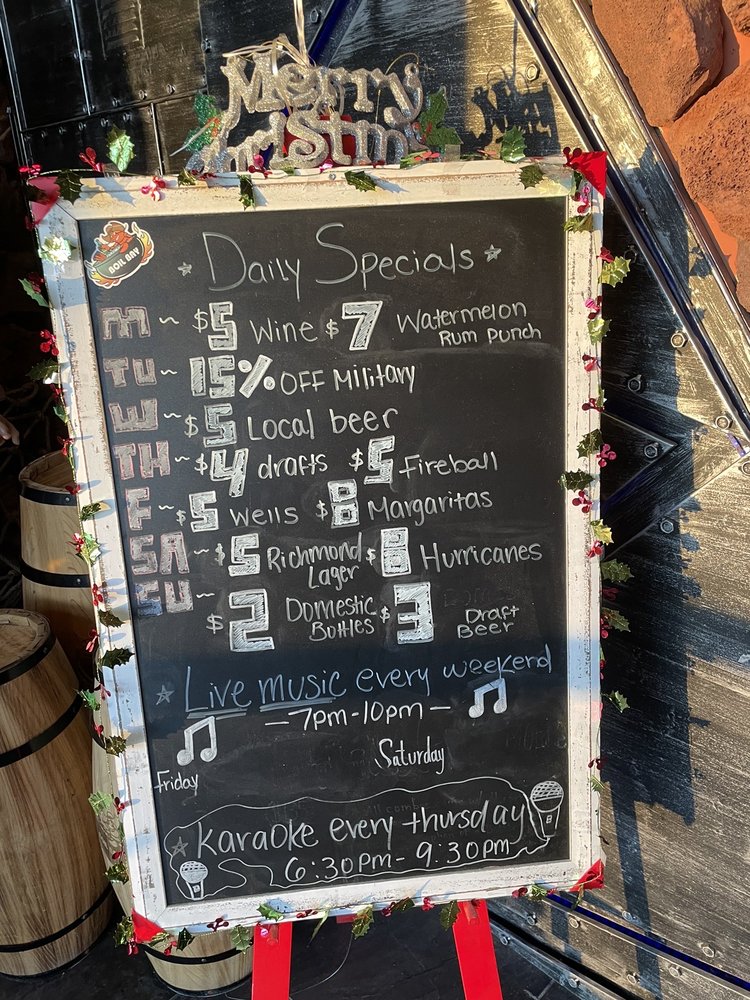 Merry
Christmas
BOIL BAY
Daily Specials
M ~ $5 Wine $7 Watermelon
Rum Punch
TU ~ 15% OFF Military
W ~ $5 Local beer
TH ~ $4 drafts $5 Fireball
F ~ $5 Wells $8 Margaritas
SA ~ $5 Richmond
Lager $8 Hurricanes
SU ~ $2 Domestic
Bottles $3 Draft
Beer
Live music every weekend
— 7pm - 10pm —
Friday
Saturday
Karaoke every thursday
6:30pm - 9:30pm